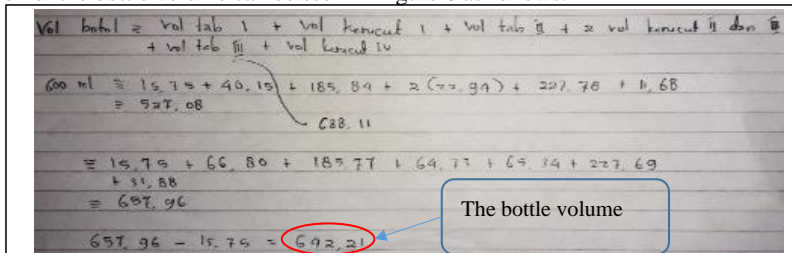 Vol botol = vol tab 1 + vol kerucut 1 + vol tab II + 2 vol kerucut II dan III
+ vol tab III + vol kerucut IV
600 ml = 15,75 + 40,15 + 185,84 + 2 (22,94) + 227,78 + 11,68
= 527,08
638,11
= 15,75 + 66,80 + 185,77 + 64,73 + 65,34 + 227,69
+ 31,88
= 657,96
The bottle volume
657,96 - 15,75 = 642,21